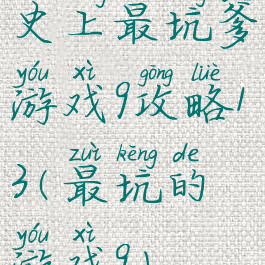 史上最坑爹
yóu xì gōng lüè
游戏9攻略1
zuì kēng de
3(最坑的
yóu xì
游戏9)